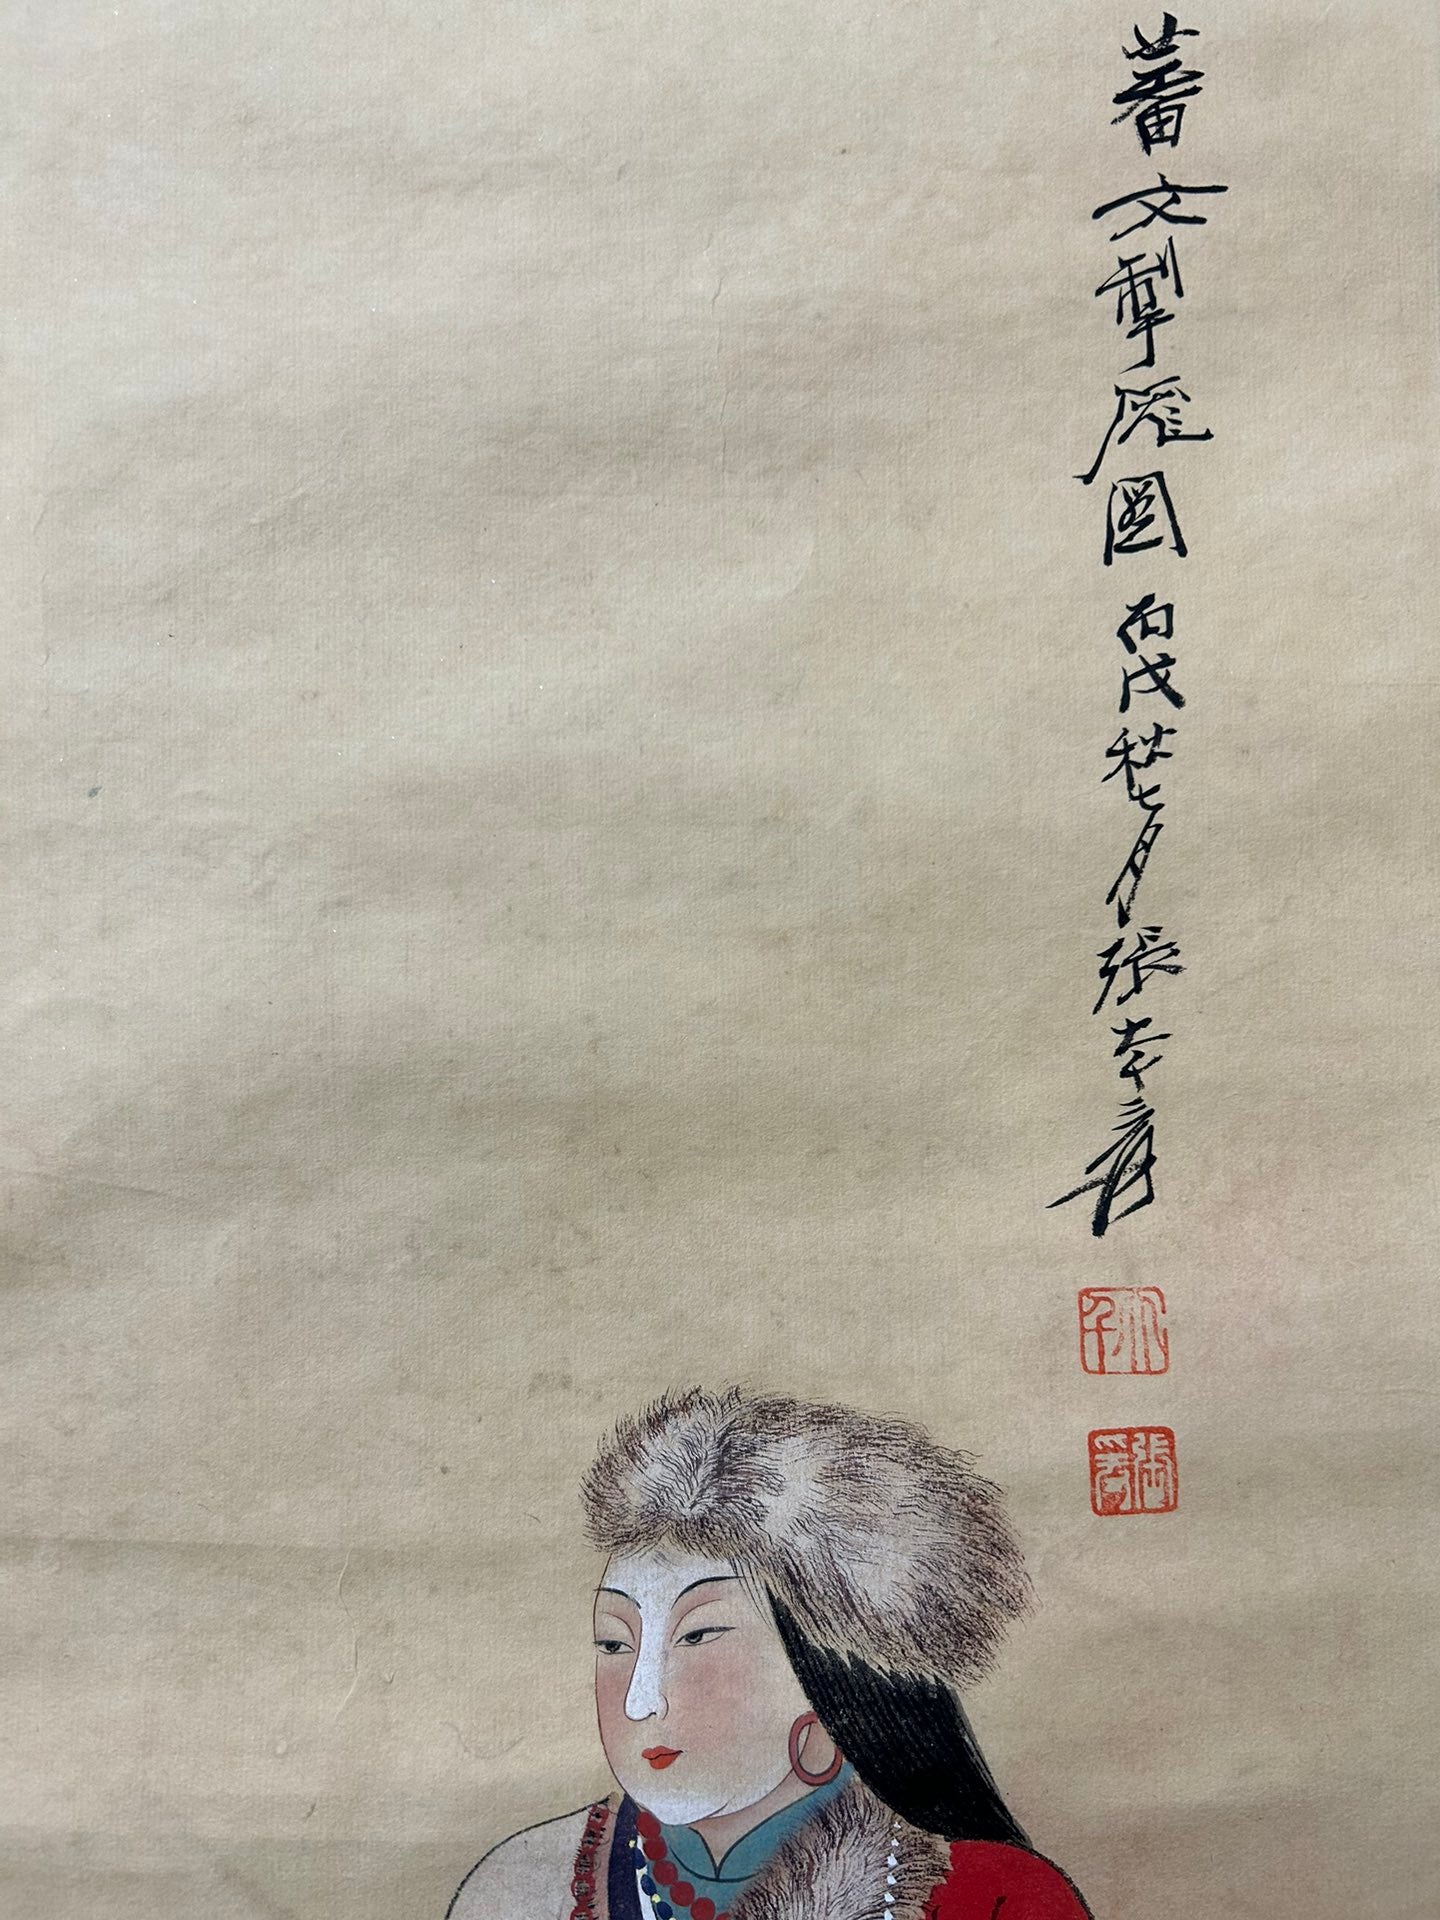 蕃女掣厖圖 丙戌秋七月 張大千爰
大千
張爰